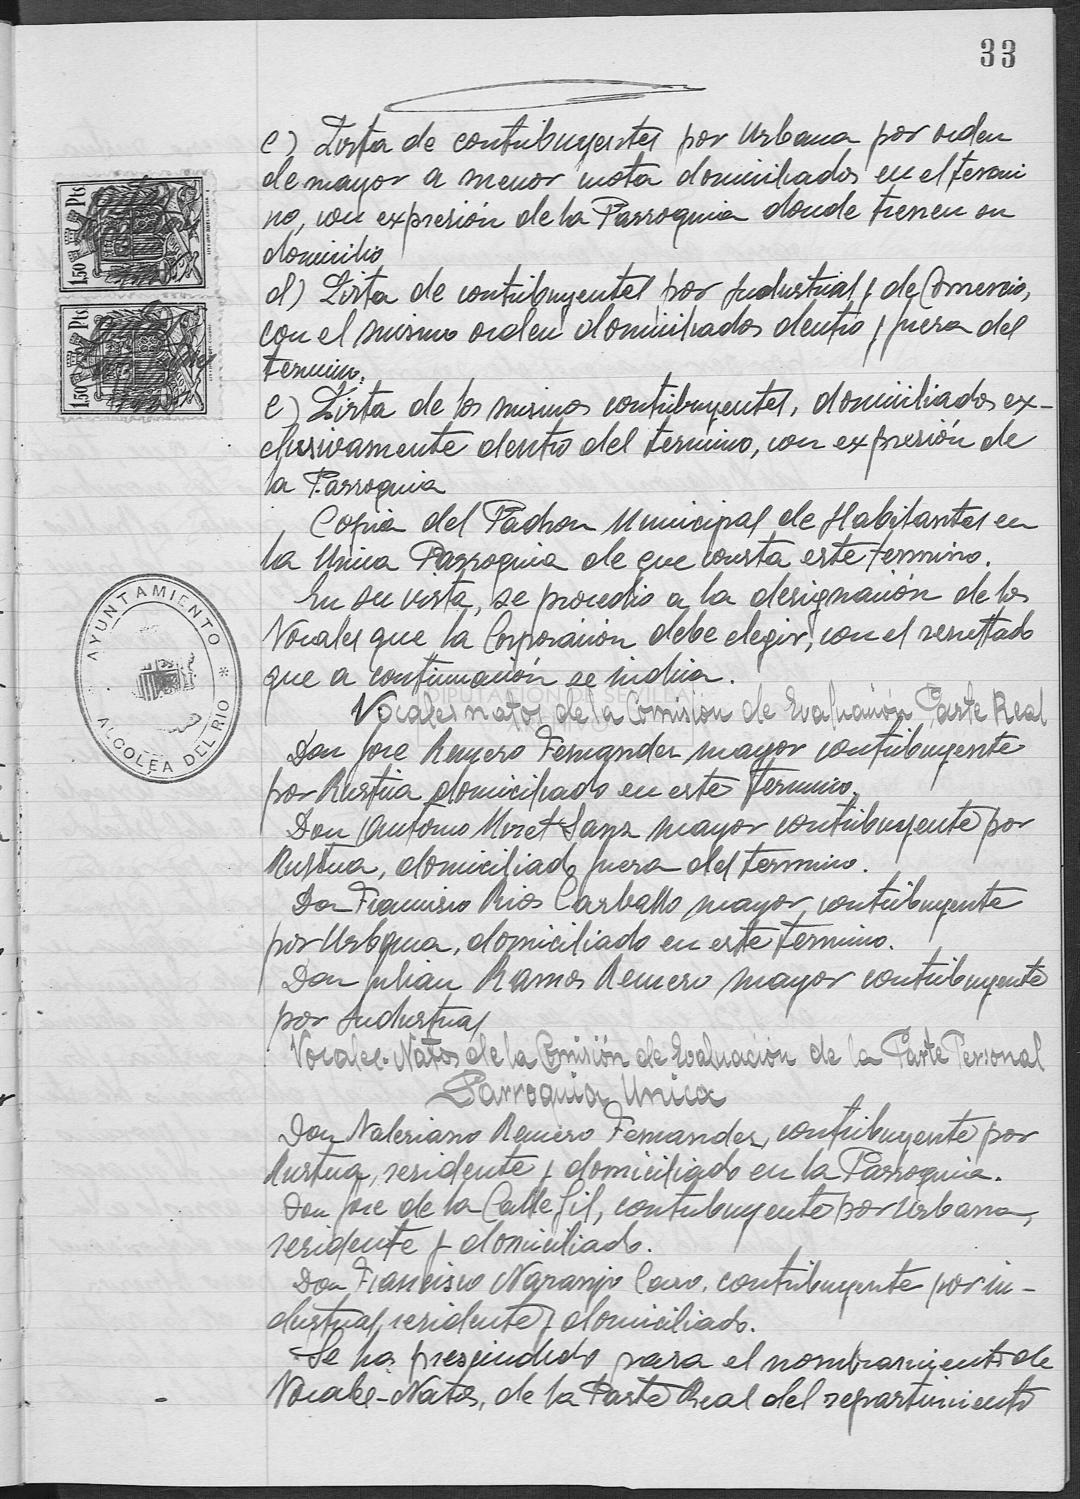 33
c) Lista de contribuyentes por Urbana por orden
de mayor a menor cuota domiciliados en el termi
no, con expresión de la Parroquia donde tienen su
domicilio
d) Lista de contribuyentes por Industrial y de Comercio,
con el mismo orden domiciliados dentro y fuera del
termino.
e) Lista de los mismos contribuyentes, domiciliados ex-
clusivamente dentro del termino, con expresión de
la Parroquia
Copia del Padron Municipal de Habitantes en
la Unica Parroquia de que consta este termino.
En su vista, se procedio a la designación de los
Vocales que la Corporación debe elegir, con el resultado
que a continuación se indica.
Vocales natos de la Comisión de Evaluación Parte Real
Don Jose Romero Fernandez mayor contribuyente
por Rustica domiciliado en este termino.
Don Antonio Miret Sanz mayor contribuyente por
Rustica, domiciliado fuera del termino.
Don Francisco Rios Carballo mayor contribuyente
por Urbana, domiciliado en este termino.
Don Julian Ramos Romero mayor contribuyente
por Industrial
Vocales-Natos de la Comisión de Evaluación de la Parte Personal
Parroquia Unica
Don Valeriano Romero Fernandez, contribuyente por
Rustica, residente y domiciliado en la Parroquia.
Don Jose de la Calle Gil, contribuyente por Urbana,
residente y domiciliado.
Don Francisco Naranjo Caro, contribuyente por in-
dustrial, residente y domiciliado.
Se ha prescindido para el nombramiento de
Vocales-Natos, de la Parte Real del repartimiento
1.50 Pts
1.50 Pts
AYUNTAMIENTO
* ALCOLEA DEL RIO
DIPUTACION DE SEVILLA